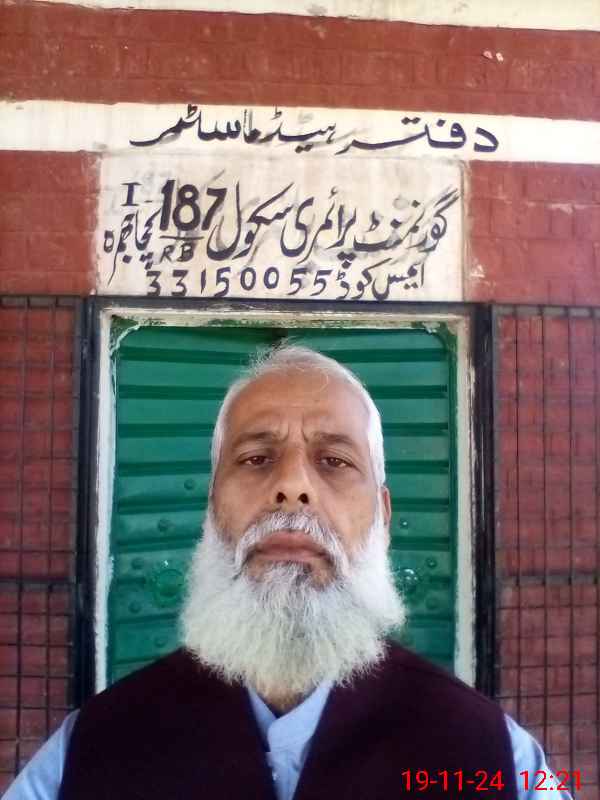 دفتر ہیڈ ماسٹر
گورنمنٹ پرائمری سکول 187/RB-I
ایمس کوڈ 33150055
19-11-24 12:21